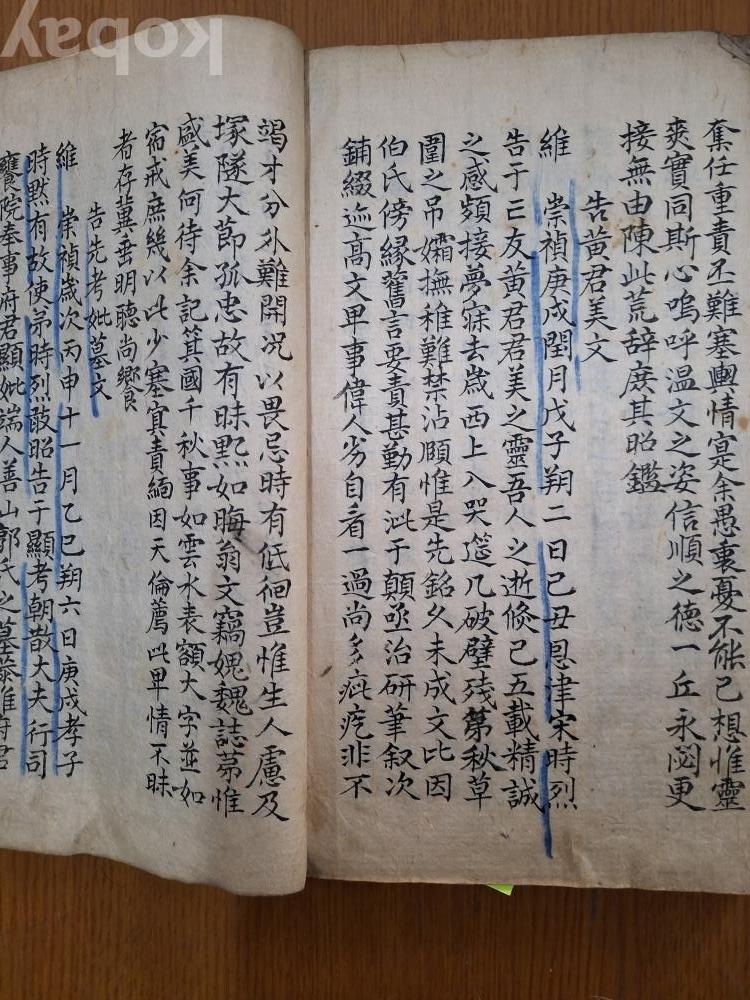 奪任重責丕難塞輿情寔余愚衷憂不能已想惟靈
爽實同斯心嗚呼溫文之姿信順之德一丘永閟更
接無由陳此荒辞庶其昭鑑
告黃君美文
維 崇禎庚戌閏月戊子朔二日己丑恩津宋時烈
告于亡友黃君君美之靈吾人之逝倏已五載精誠
之感頻接夢寐去歲西上入哭筵几破壁残苐秋草
圍之吊孀撫稚難禁沾頤惟是先銘久未成文比因
伯氏傍緣舊言要責甚勤有泚于顙亟治研筆叙次
鋪綴迹高文卑事偉人劣自看一過尚多疵疙非不
竭才分外難開况以畏忌時有低徊豈惟生人慮及
塚隧大節孤忠故有昧㸃如晦翁文竊媿魏誌苐惟
盛美何待余記箕國千秋事如雲水表額大字並如
宿戒庶幾以此少塞寘責緬因天倫薦此卑情不昧
者存冀垂明聽尚饗
告先考妣墓文
維 崇禎歲次丙申十一月乙巳朔六日庚戌孝子
時黙有故使弟時烈敢昭告于顯考朝散大夫行司
饔院奉事府君顯妣端人善山郭氏之墓恭惟府君
kobay